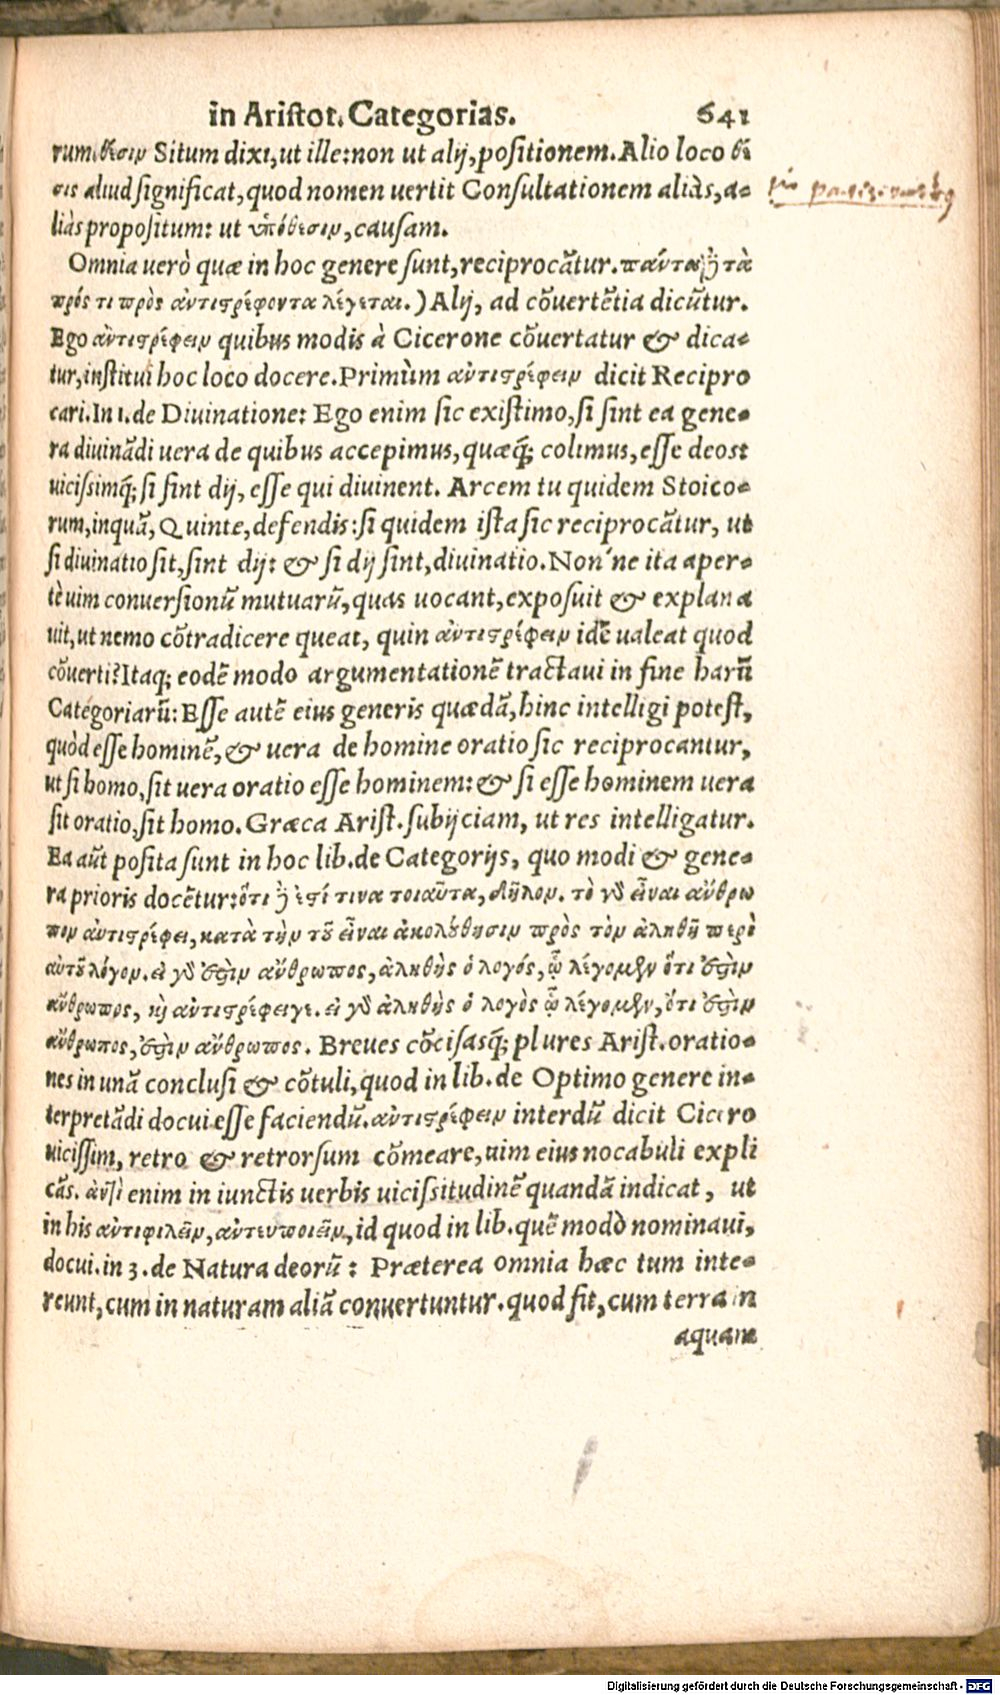 in Aristot. Categorias. 641
rum. θέσιν Situm dixi, ut ille: non ut alij, positionem. Alio loco θέ
σις aliud significat, quod nomen uertit Consultationem aliàs, a-
liàs propositum: ut ὑπόθεσιν, causam.
Omnia uerò quæ in hoc genere sunt, reciprocātur. πάντα δὲ τὰ
πρός τι πρὸς ἀντιστρέφοντα λέγεται.) Alij, ad cōuertētia dicūtur.
Ego ἀντιστρέφειν quibus modis à Cicerone cōuertatur & dica-
tur, institui hoc loco docere. Primùm ἀντιστρέφειν dicit Recipro
cari. In 1. de Diuinatione: Ego enim sic existimo, si sint ea gene-
ra diuinādi uera de quibus accepimus, quæq́; colimus, esse deos:
uicissimq́; si sint dij, esse qui diuinent. Arcem tu quidem Stoico-
rum, inquā, Quinte, defendis: si quidem ista sic reciprocātur, ut
si diuinatio sit, sint dij: & si dij sint, diuinatio. Non'ne ita aper-
tè uim conuersionū mutuarū, quas uocant, exposuit & explana
uit, ut nemo cōtradicere queat, quin ἀντιστρέφειν idē ualeat quod
cōuerti? Itaq; eodē modo argumentationē tractaui in fine harū
Categoriarū: Esse autē eius generis quædā, hinc intelligi potest,
quòd esse hominē, & uera de homine oratio sic reciprocantur,
ut si homo, sit uera oratio esse hominem: & si esse hominem uera
sit oratio, sit homo. Græca Arist. subijciam, ut res intelligatur.
Ea aūt posita sunt in hoc lib. de Categorijs, quo modi & gene-
ra prioris docētur: ὅτι δὲ ἐστί τινα τοιαῦτα, δῆλον. τὸ γὸ εἶναι ἄνθρω
πον ἀντιστρέφει, κατὰ τὴν τοῦ εἶναι ἀκολούθησιν πρὸς τὸν ἀληθῆ περὶ
αὐτοῦ λόγον. εἰ γὸ ἔστιν ἄνθρωπος, ἀληθὴς ὁ λογός, ᾧ λέγομεν ὅτι ἔστιν
ἄνθρωπος, καὶ ἀντιστρέφειγε. εἰ γὸ ἀληθὴς ὁ λογὸς ᾧ λέγομεν, ὅτι ἔστιν
ἄνθρωπος, ἔστιν ἄνθρωπος. Breues cōcisasq́; plures Arist. oratio-
nes in unā conclusi & cōtuli, quod in lib. de Optimo genere in-
terpretādi docui esse faciendū. ἀντιστρέφειν interdū dicit Cicero
uicissim, retro & retrorsum cōmeare, uim eius uocabuli expli
cās. ἀντὶ enim in iunctis uerbis uicissitudinē quandā indicat, ut
in his ἀντιφιλεῖν, ἀντευποιεῖν, id quod in lib. quē modò nominaui,
docui. in 3. de Natura deorū: Præterea omnia hæc tum inte-
reunt, cum in naturam aliā conuertuntur. quod fit, cum terra in
aquam
Digitalisierung gefördert durch die Deutsche Forschungsgemeinschaft - DFG